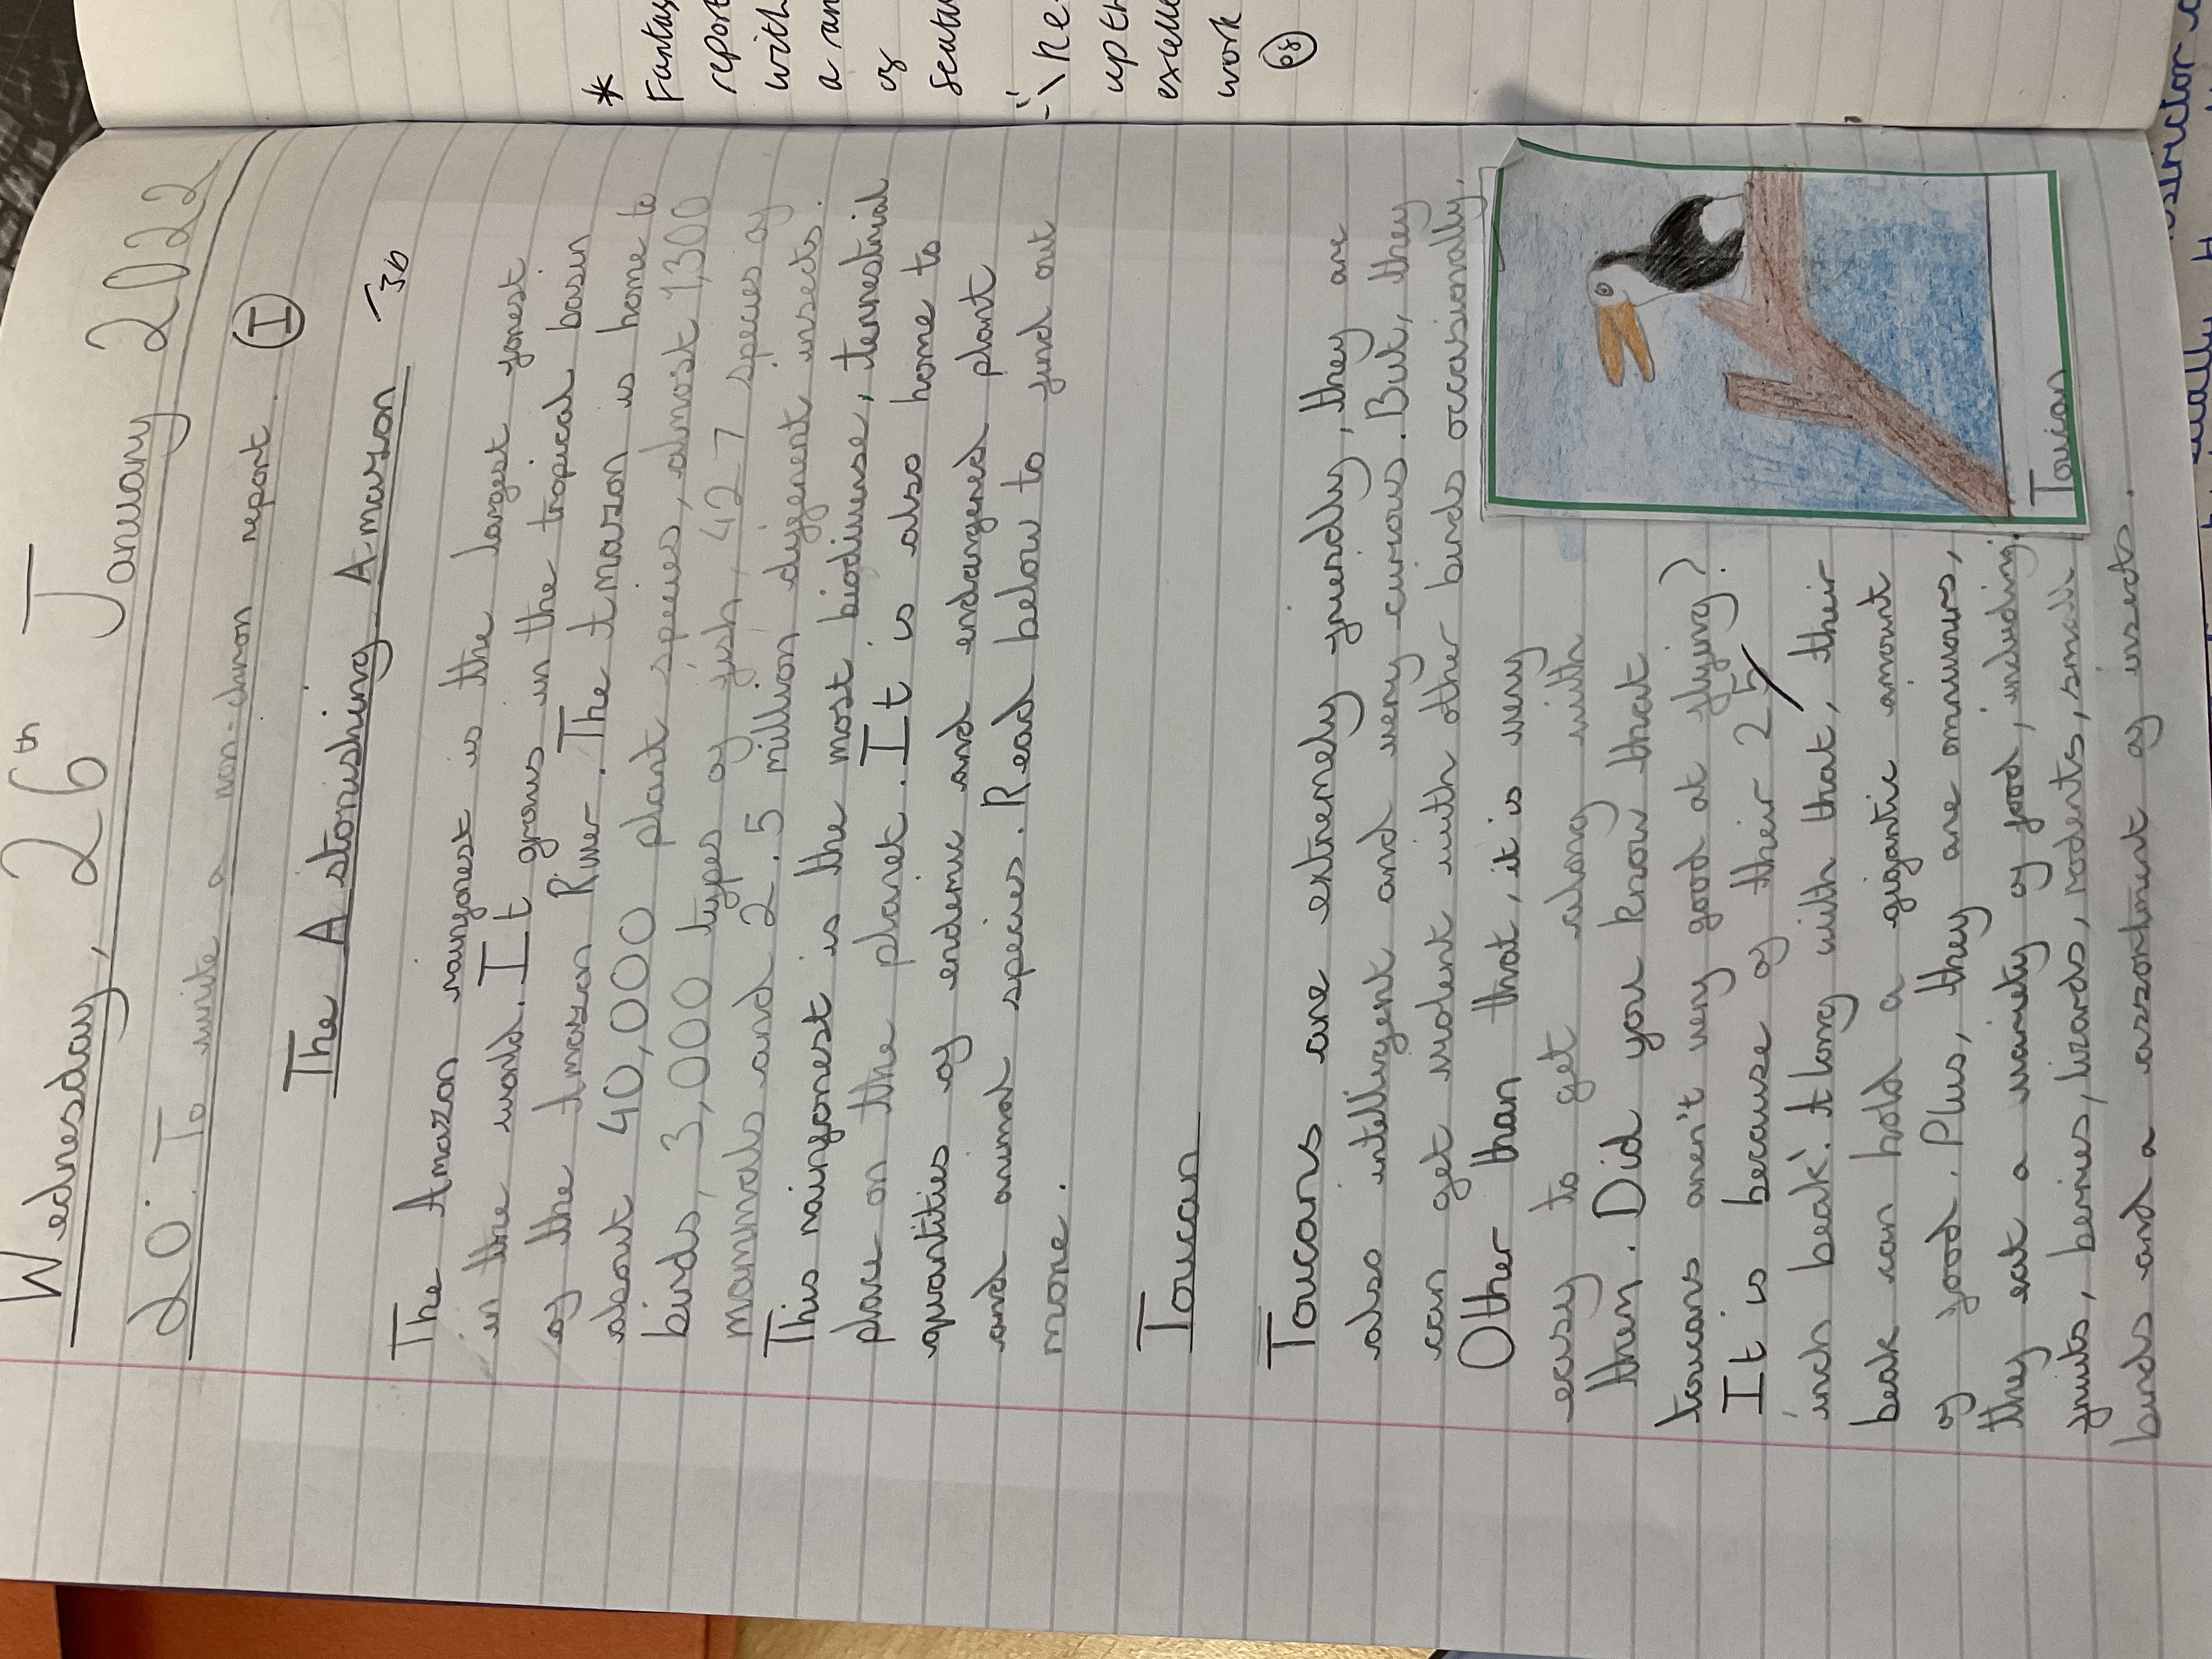 Wednesday, 26th January 2022
LO: To write a non-chron report. I
The Astonishing Amazon
The Amazon rainforest is the largest forest
in the world. It grows in the tropical basin
of the Amazon River. The Amazon is home to
about 40,000 plant species, almost 1,300
birds, 3,000 types of fish, 427 species of
mammals and 2.5 million different insects.
This rainforest is the most biodiverse, terrestrial
place on the planet. It is also home to
quantities of endemic and endangered plant
and animal species. Read below to find out
more.
Toucan
Toucans are extremely friendly, they are
also intelligent and very curious. But, they
can get violent with other birds occasionally.
Other than that, it is very
easy to get along with
them. Did you know that
toucans aren't very good at flying?
It is because of their 25
inch beak. Along with that, their
beak can hold a gigantic amount
of food. Plus, they are omnivores,
they eat a variety of food, including
fruits, berries, lizards, rodents, small
birds and a assortment of insects.
Toucan
*
report
with
of
up th
work